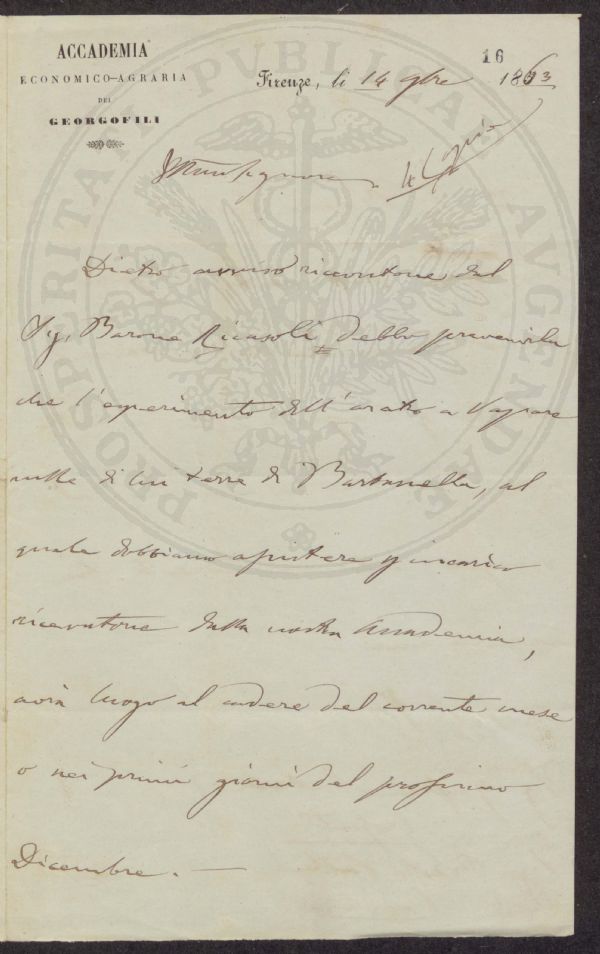 ACCADEMIA
ECONOMICO-AGRARIA
DEI
GEORGOFILI
16
Firenze, li 14 9bre 1863
Copia
PROSPERITATI PVBLICAE AVGENDAE
Dietro avviso ricevutone dal
Sig. Barone Ricasoli debbo prevenirla
che l'esperimento dell'aratro a Vapore
nelle di lui terre di Barbanella, al
quale dobbiamo assistere p incarico
ricevutone dalla nostra Accademia,
avrà luogo al cadere del corrente mese
o nei primi giorni del prossimo
Dicembre. —